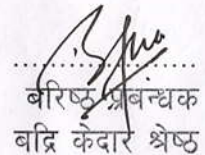 ....................
बरिष्ठ प्रबन्धक
बद्रि केदार श्रेष्ठ